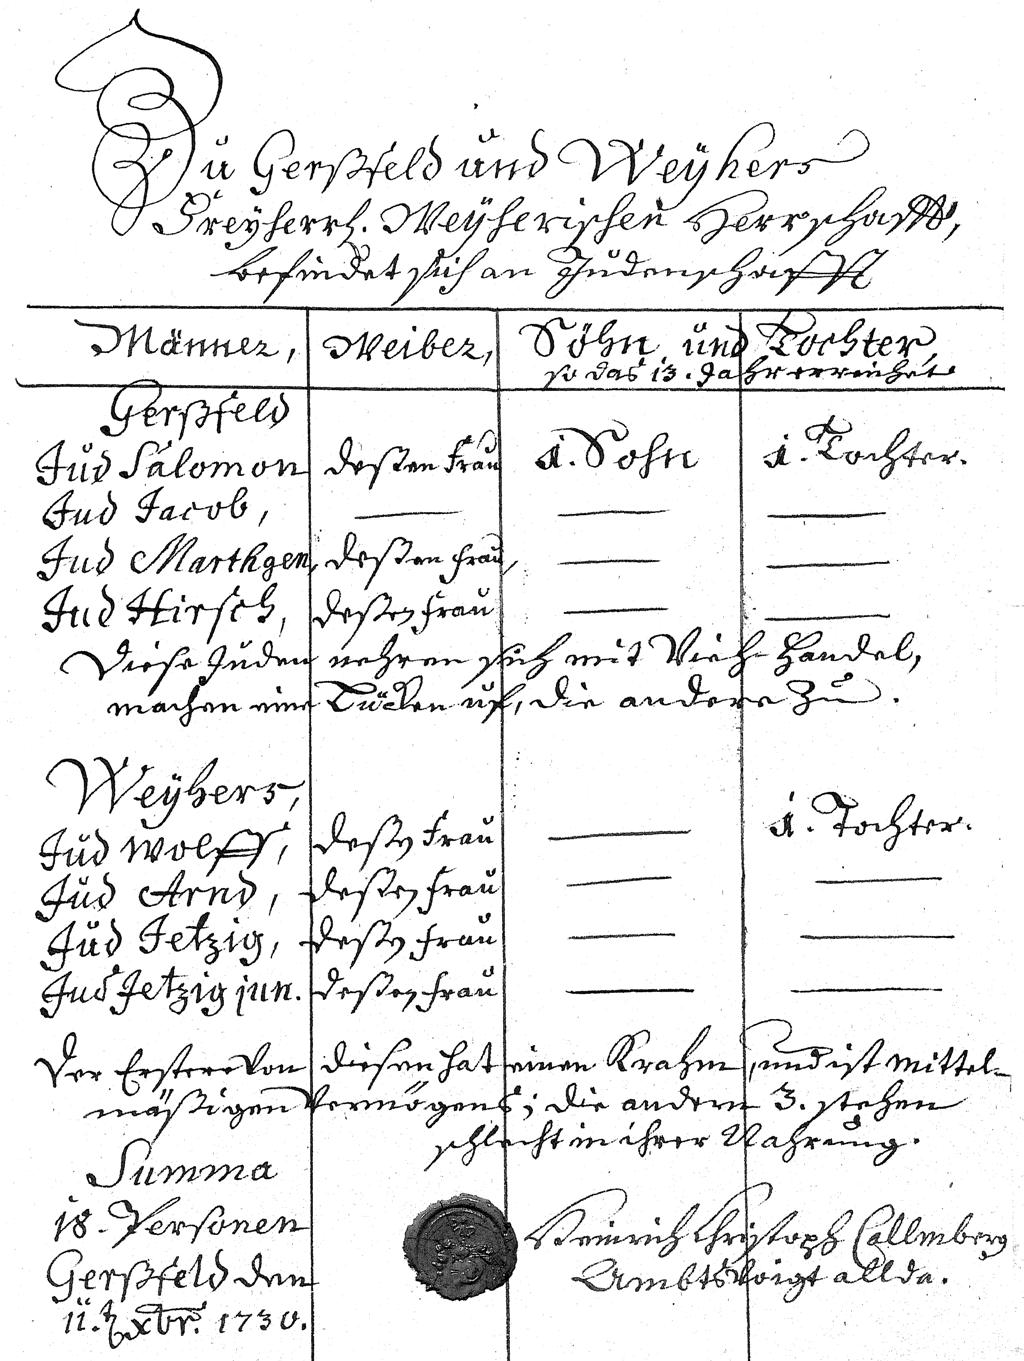 Zu Gerßfeld und Weÿhers
Freÿherrl. Weÿherischen Herrschafft,
befindet sich an Judenschafft
Männer, Weiber, Söhn und Tochter,
so das 13. Jahr erreichet.
Gerßfeld
Jud Salomon deßen Frau 1. Sohn 1. Tochter.
Jud Jacob, — — —
Jud Marthgen, deßen Frau, — —
Jud Hirsch, deßen Frau — —
Diese Juden nehren sich mit Vieh-Handel,
machen eine Lücken uf, die andere zu.
Weÿhers,
Jud Wolff, deßen Frau — 1. Tochter.
Jud Arnd, deßen Frau — —
Jud Jetzig, deßen Frau — —
Jud Jetzig jun. deßen Frau — —
Der Erstere von diesen hat einen Krahm, und ist mittel-
mäßigen Vermögens; die andern 3. stehen
schlecht in ihrer Nahrung.
Summa
18. Personen
Heinrich Christoph Callenberg
Gerßfeld den
Ambtsvoigt allda.
11. xbr. 1730.